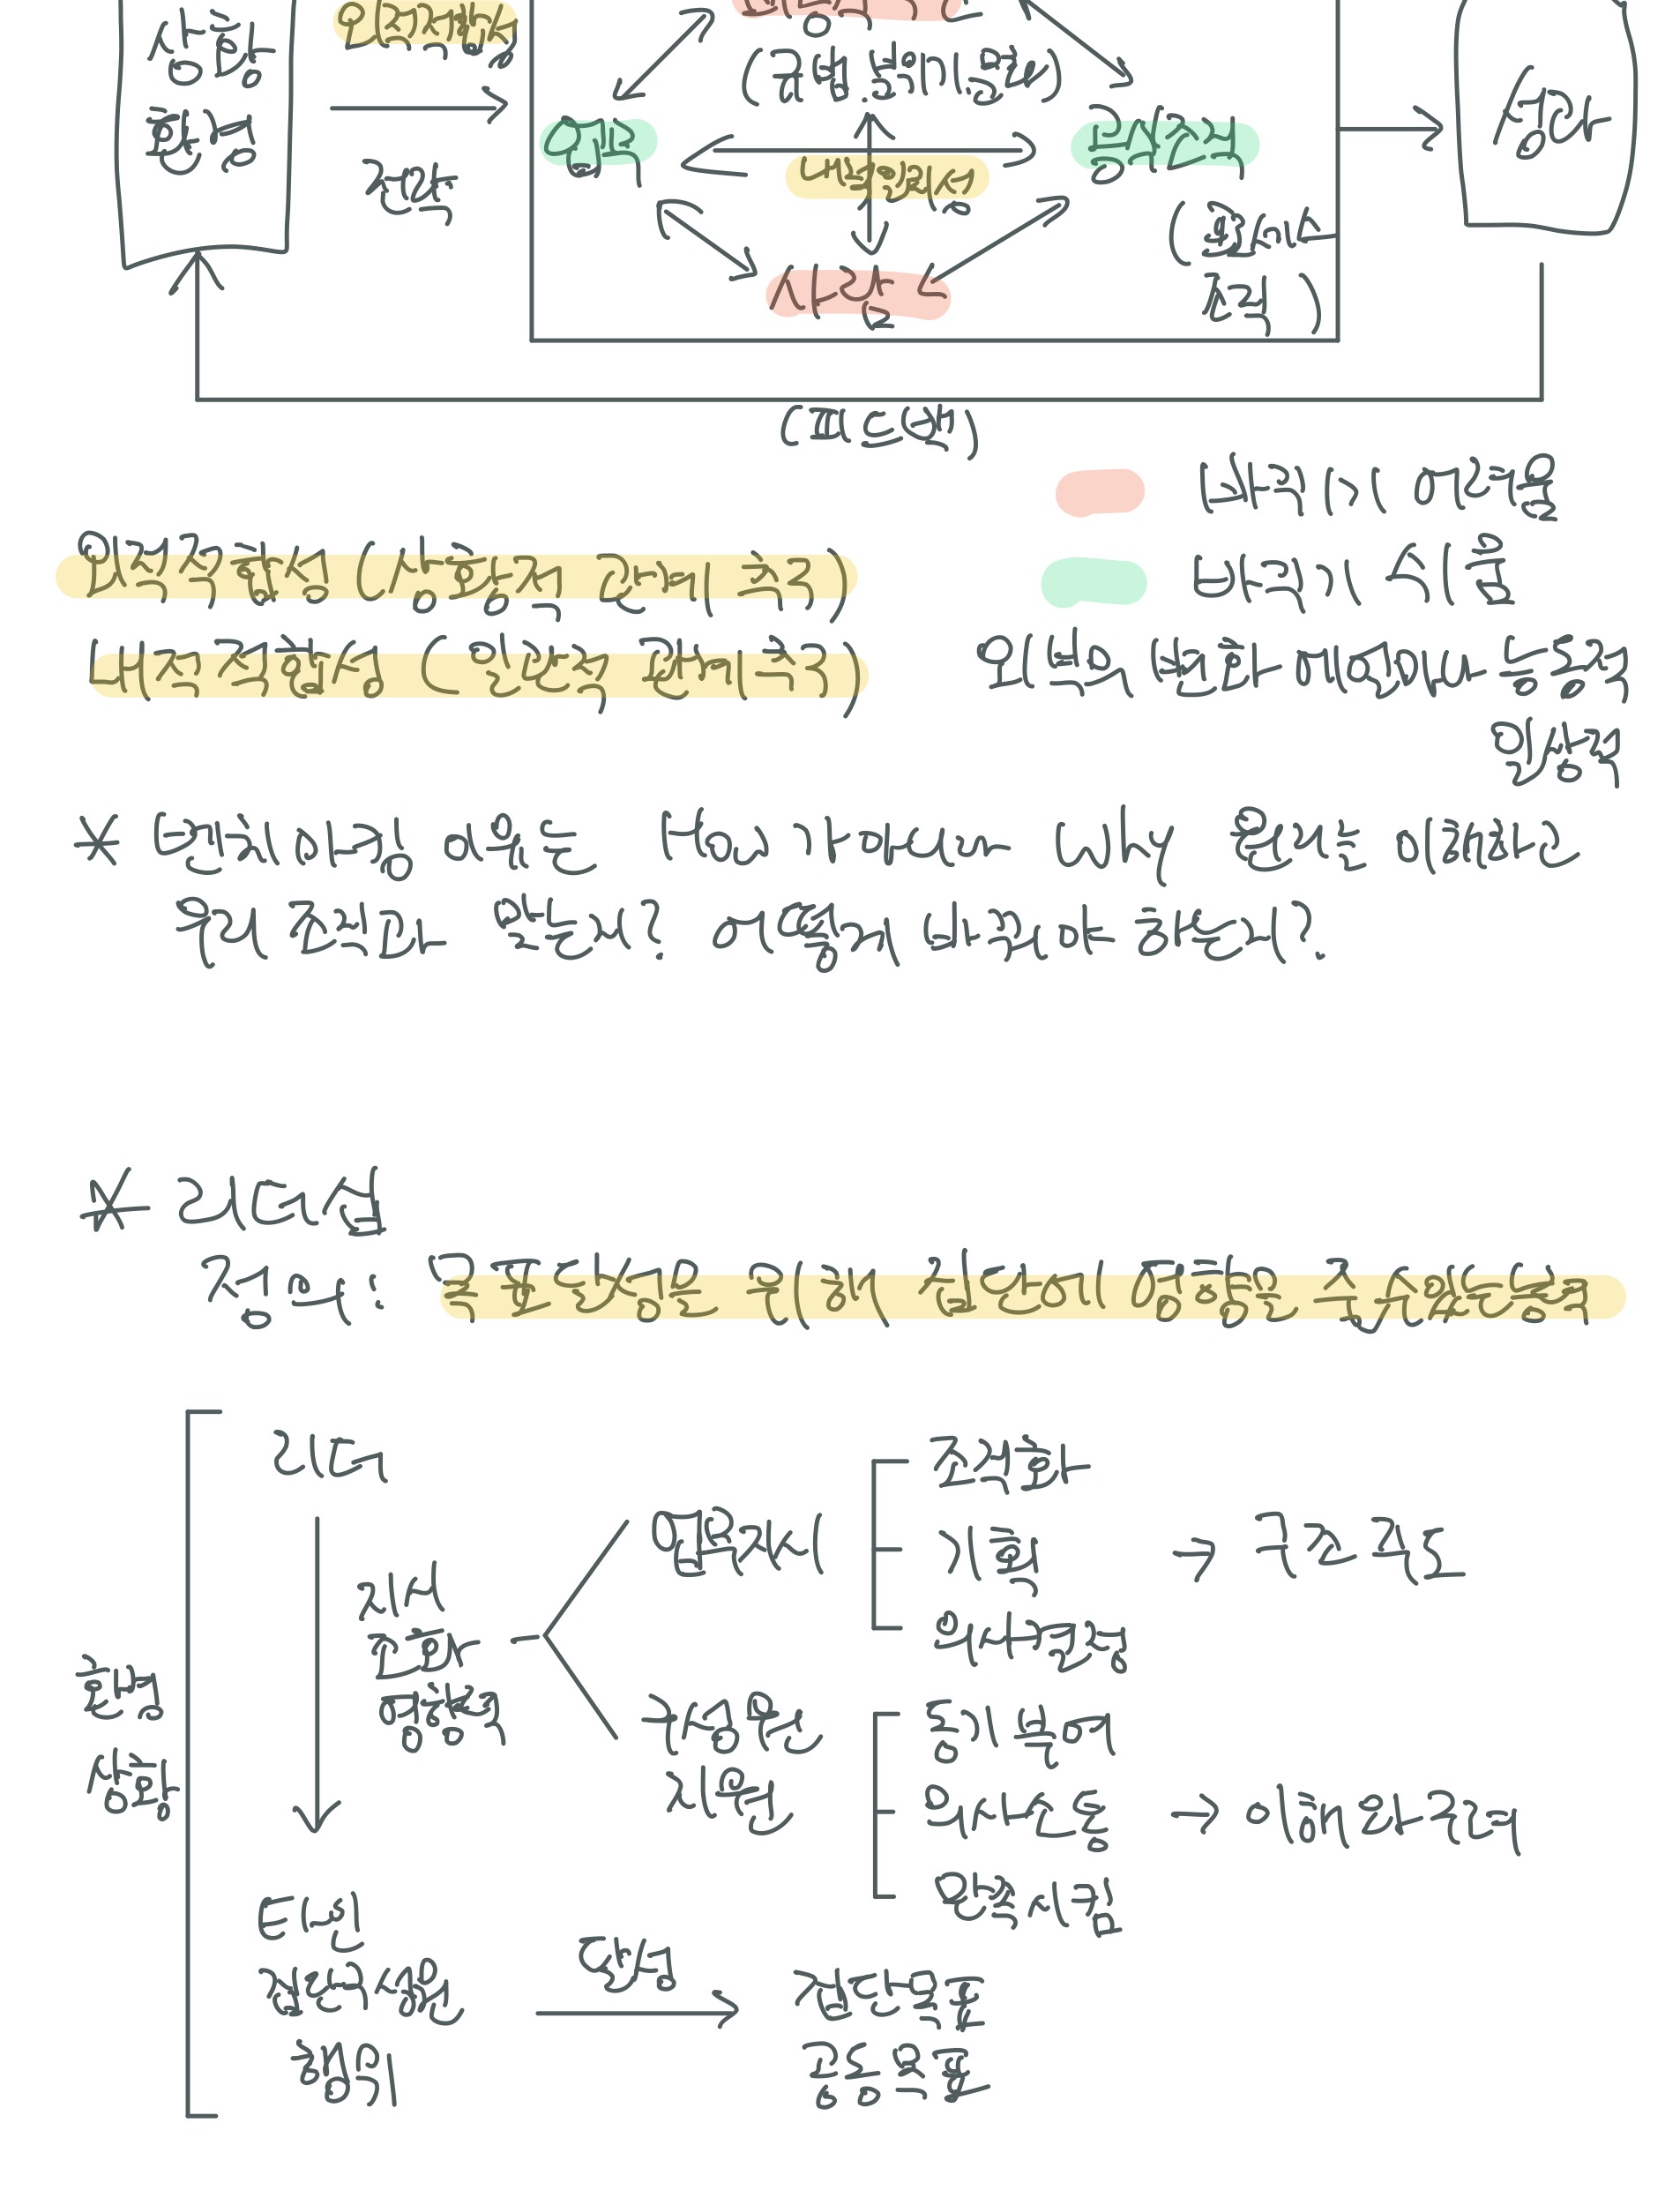 상황
환경
외적적합성
전략
(규범.분위기.문화)
업무
공식조직
내적적합성
사람
(회사
조직)
성과
(피드백)
바뀌기 어려움
바뀌기 쉬움
외적적합성 (상황적 관계 구축)
내적적합성 (일관적 관계구축)
외부의 변화에 얼마나 능동적
일상적
* 벤치마킹 이유는 How 가 아니라 Why 원리는 이해하는
우리 조직과 맞는지? 어떻게 바꿔야 하는지?
* 리더십
정의: 목표달성을 위해 집단에 영향을 줄 수 있는 능력
리더
지시
조화
영향력
업무지시
조직화
기획
의사결정
→ 구조 주도
구성원
지원
동기부여
의사소통
만족시킴
→ 이해와 격려
환경
상황
타인
집단구성원
행위
달성
집단목표
공동목표